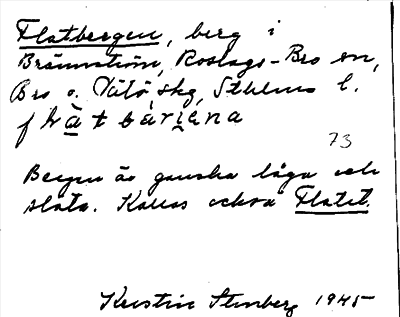 Flatbergen, berg i
Brännström, Roslags-Bro sn,
Bro o. Vätö skg, Sthlms l.
73
Bergen är ganska låga och
släta. Kallas också Flatet.
Kerstin Stenberg 1945